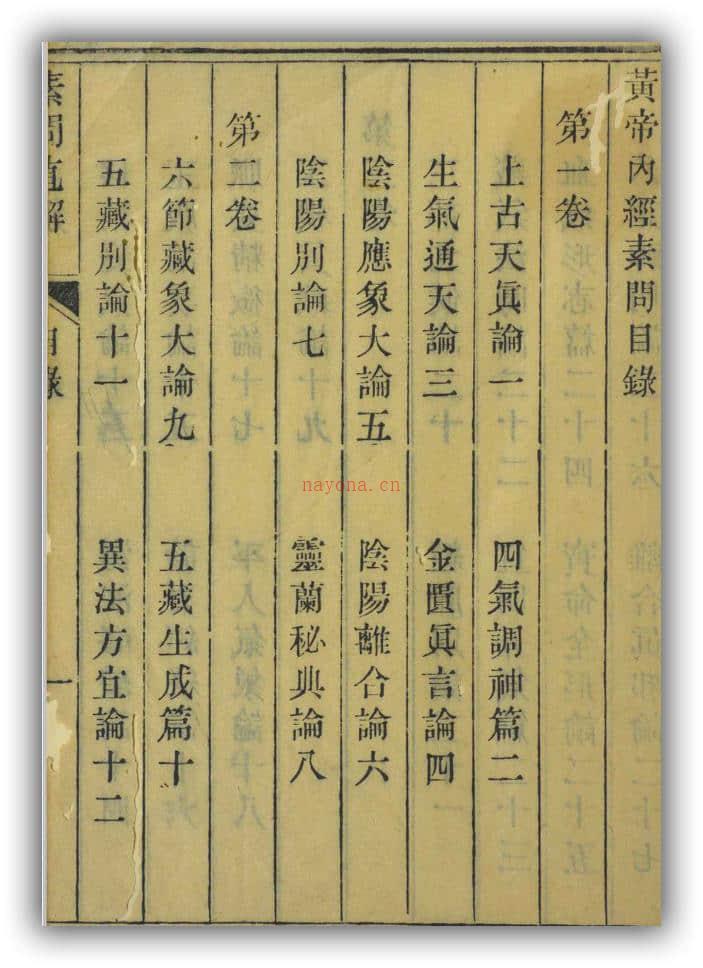 黃帝內經素問目錄
第一卷
上古天眞論一 四氣調神篇二
生氣通天論三 金匱眞言論四
陰陽應象大論五 陰陽離合論六
陰陽別論七 靈蘭秘典論八
第二卷
六節藏象大論九 五藏生成篇十
五藏別論十一 異法方宜論十二
素問直解 目錄 一
nayona.cn